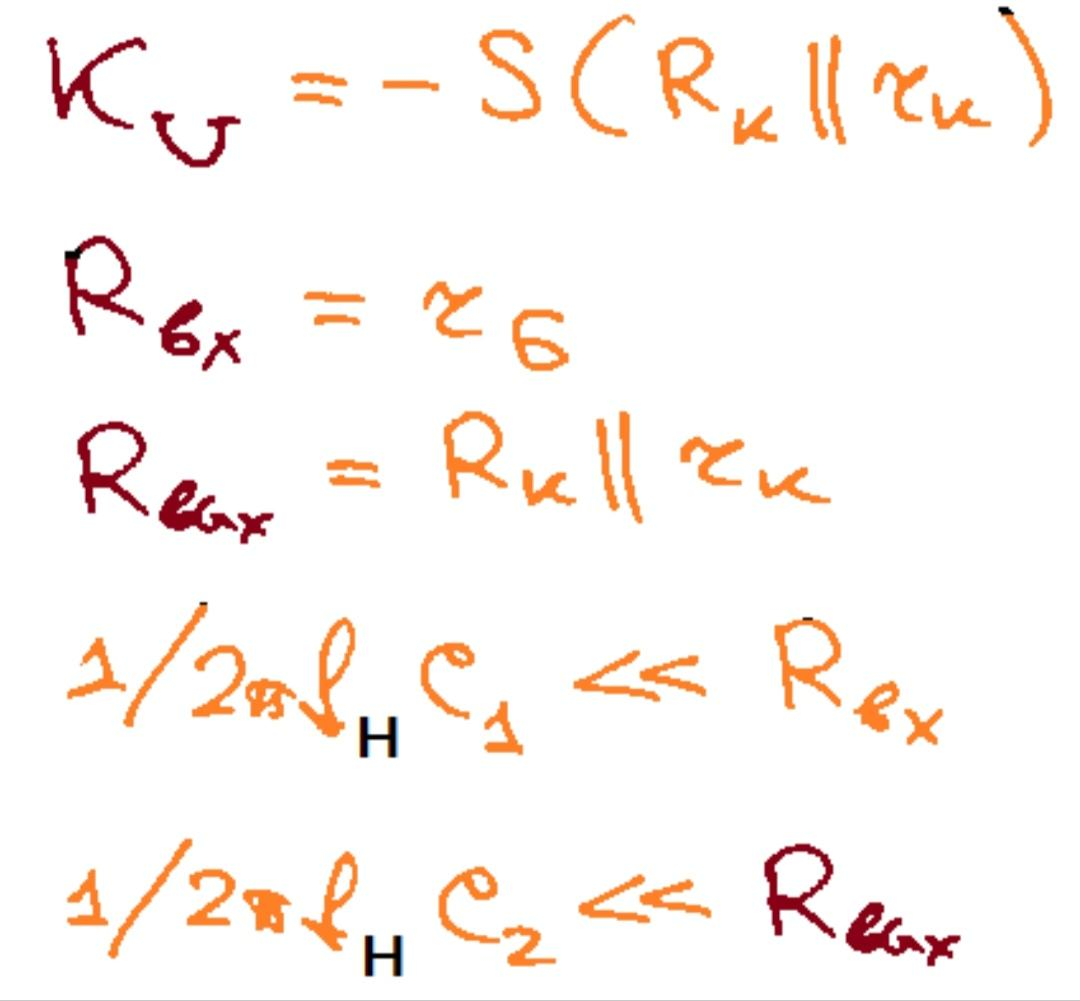 K_U = - S(R_к || r_к)
R_вх = r_б
R_вых = R_к || r_к
1/2πf_н C_1 << R_вх
1/2πf_н C_2 << R_вых